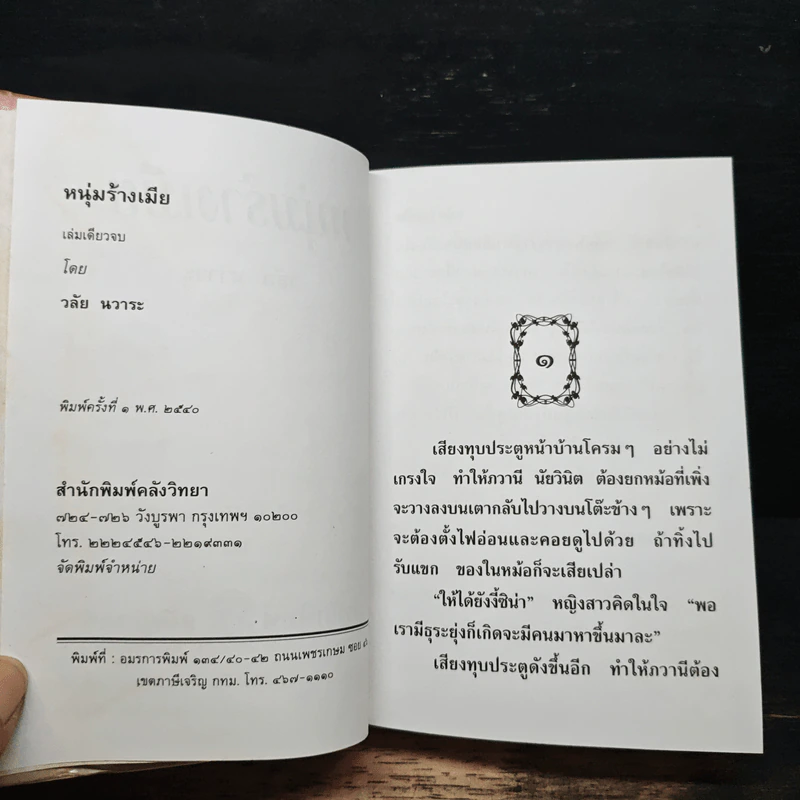 หนุ่มร้างเมีย
เล่มเดียวจบ
โดย
วลัย นวาระ
พิมพ์ครั้งที่ ๑ พ.ศ. ๒๕๔๐
สำนักพิมพ์คลังวิทยา
๗๒๔-๗๒๖ วังบูรพา กรุงเทพฯ ๑๐๒๐๐
โทร. ๒๒๒๔๕๔๖-๒๒๑๙๓๓๑
จัดพิมพ์จำหน่าย
พิมพ์ที่ : อมรการพิมพ์ ๑๓๔/๔๐-๔๒ ถนนเพชรเกษม ซอย
เขตภาษีเจริญ กทม. โทร. ๔๖๗-๑๑๑๐
๑
เสียงทุบประตูหน้าบ้านโครมๆ อย่างไม่
เกรงใจ ทำให้ภวานี นัยวินิต ต้องยกหม้อที่เพิ่ง
จะวางลงบนเตากลับไปวางบนโต๊ะข้างๆ เพราะ
จะต้องตั้งไฟอ่อนและคอยดูไปด้วย ถ้าทิ้งไป
รับแขก ของในหม้อก็จะเสียเปล่า
“ให้ได้ยังงี้ซิน่า” หญิงสาวคิดในใจ “พอ
เรามีธุระยุ่งก็เกิดจะมีคนมาหาขึ้นมาละ”
เสียงทุบประตูดังขึ้นอีก ทำให้ภวานีต้อง